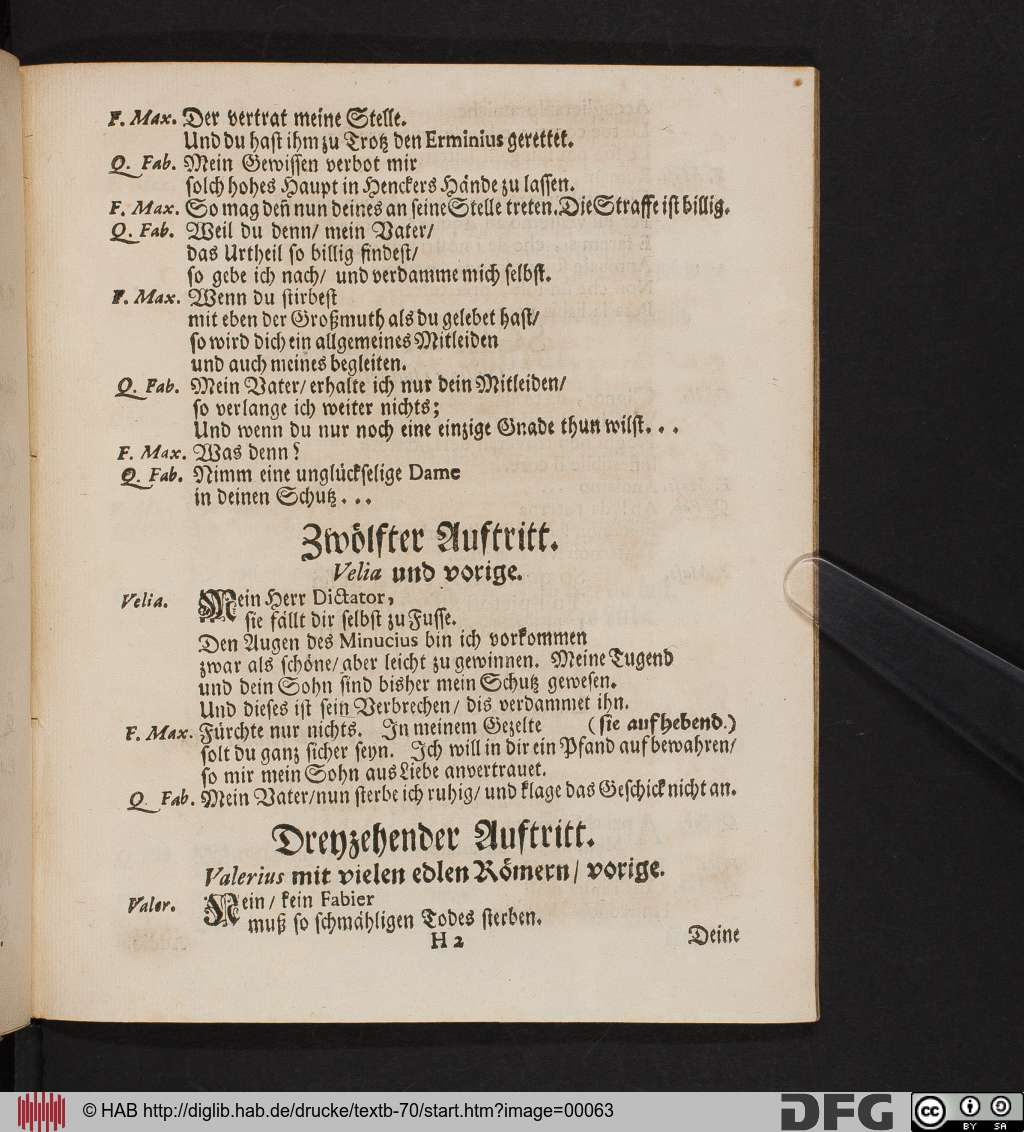 F. Max. Der vertrat meine Stelle.
Und du hast ihm zu Trotz den Erminius gerettet.
Q. Fab. Mein Gewissen verbot mir
solch hohes Haupt in Henckers Hände zu lassen.
F. Max. So mag deñ nun deines an seine Stelle treten. Die Straffe ist billig.
Q. Fab. Weil du denn/ mein Vater/
das Urtheil so billig findest/
so gebe ich nach/ und verdamme mich selbst.
F. Max. Wenn du stirbest
mit eben der Großmuth als du gelebet hast/
so wird dich ein allgemeines Mitleiden
und auch meines begleiten.
Q. Fab. Mein Vater/ erhalte ich nur dein Mitleiden/
so verlange ich weiter nichts;
Und wenn du nur noch eine einzige Gnade thun wilst. . .
F. Max. Was denn?
Q. Fab. Nimm eine unglückselige Dame
in deinen Schutz . . .
Zwölfter Auftritt.
Velia und vorige.
Velia. Mein Herr Dictator,
sie fällt dir selbst zu Fusse.
Den Augen des Minucius bin ich vorkommen
zwar als schöne/ aber leicht zu gewinnen. Meine Tugend
und dein Sohn sind bisher mein Schutz gewesen.
Und dieses ist sein Verbrechen/ dis verdammet ihn.
F. Max. Fürchte nur nichts. In meinem Gezelte (sie aufhebend.)
solt du ganz sicher seyn. Ich will in dir ein Pfand aufbewahren/
so mir mein Sohn aus Liebe anvertrauet.
Q. Fab. Mein Vater/ nun sterbe ich ruhig/ und klage das Geschick nicht an.
Dreyzehender Auftritt.
Valerius mit vielen edlen Römern/ vorige.
Valer. Nein/ kein Fabier
muß so schmähligen Todes sterben.
H 2 Deine
© HAB http://diglib.hab.de/drucke/textb-70/start.htm?image=00063
DFG
cc BY SA